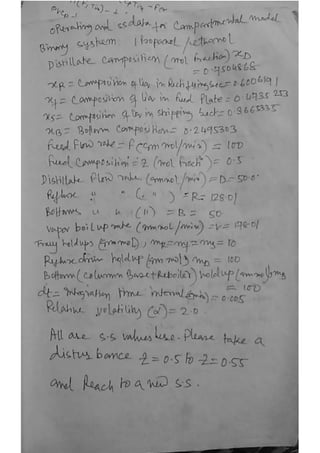 Operating and ss data for Compartmental model
Binary system: 1 Propanol / ethanol
Distillate Composition (mol fraction) xD
= 0.7504868
xR = Composition of liq. in Rectifying sec = 0.6006191
xf = Composition of liq in Feed Plate = 0.4735253
xS = Composition of liq in stripping sect = 0.3665335
xB = Bottom Composition = 0.2495303
Feed Flow rate = F (gmmol/min) = 100
Feed Composition = Z (mol fract) = 0.5
Distillate Flow rate (gmmol/min) = D = 50.0
Reflux " " ( " ) = R = 128.01
Bottoms " " ( " ) = B = 50
Vapor boilup rate (gmmol/min) = V = 178.01
Tray holdups (gmmol), mR = mS = mf = 10
Reflux drum holdup (gm mol) mD = 100
Bottom (column Base + Reboiler) holdup (gm mol) mB
= 100
dt = Integration time interval (min) = 0.005
Relative volatility (α) = 2.0
All are s.s values here. Please take a
disturbance Z = 0.5 to Z = 0.55
and Reach to a new s.s.